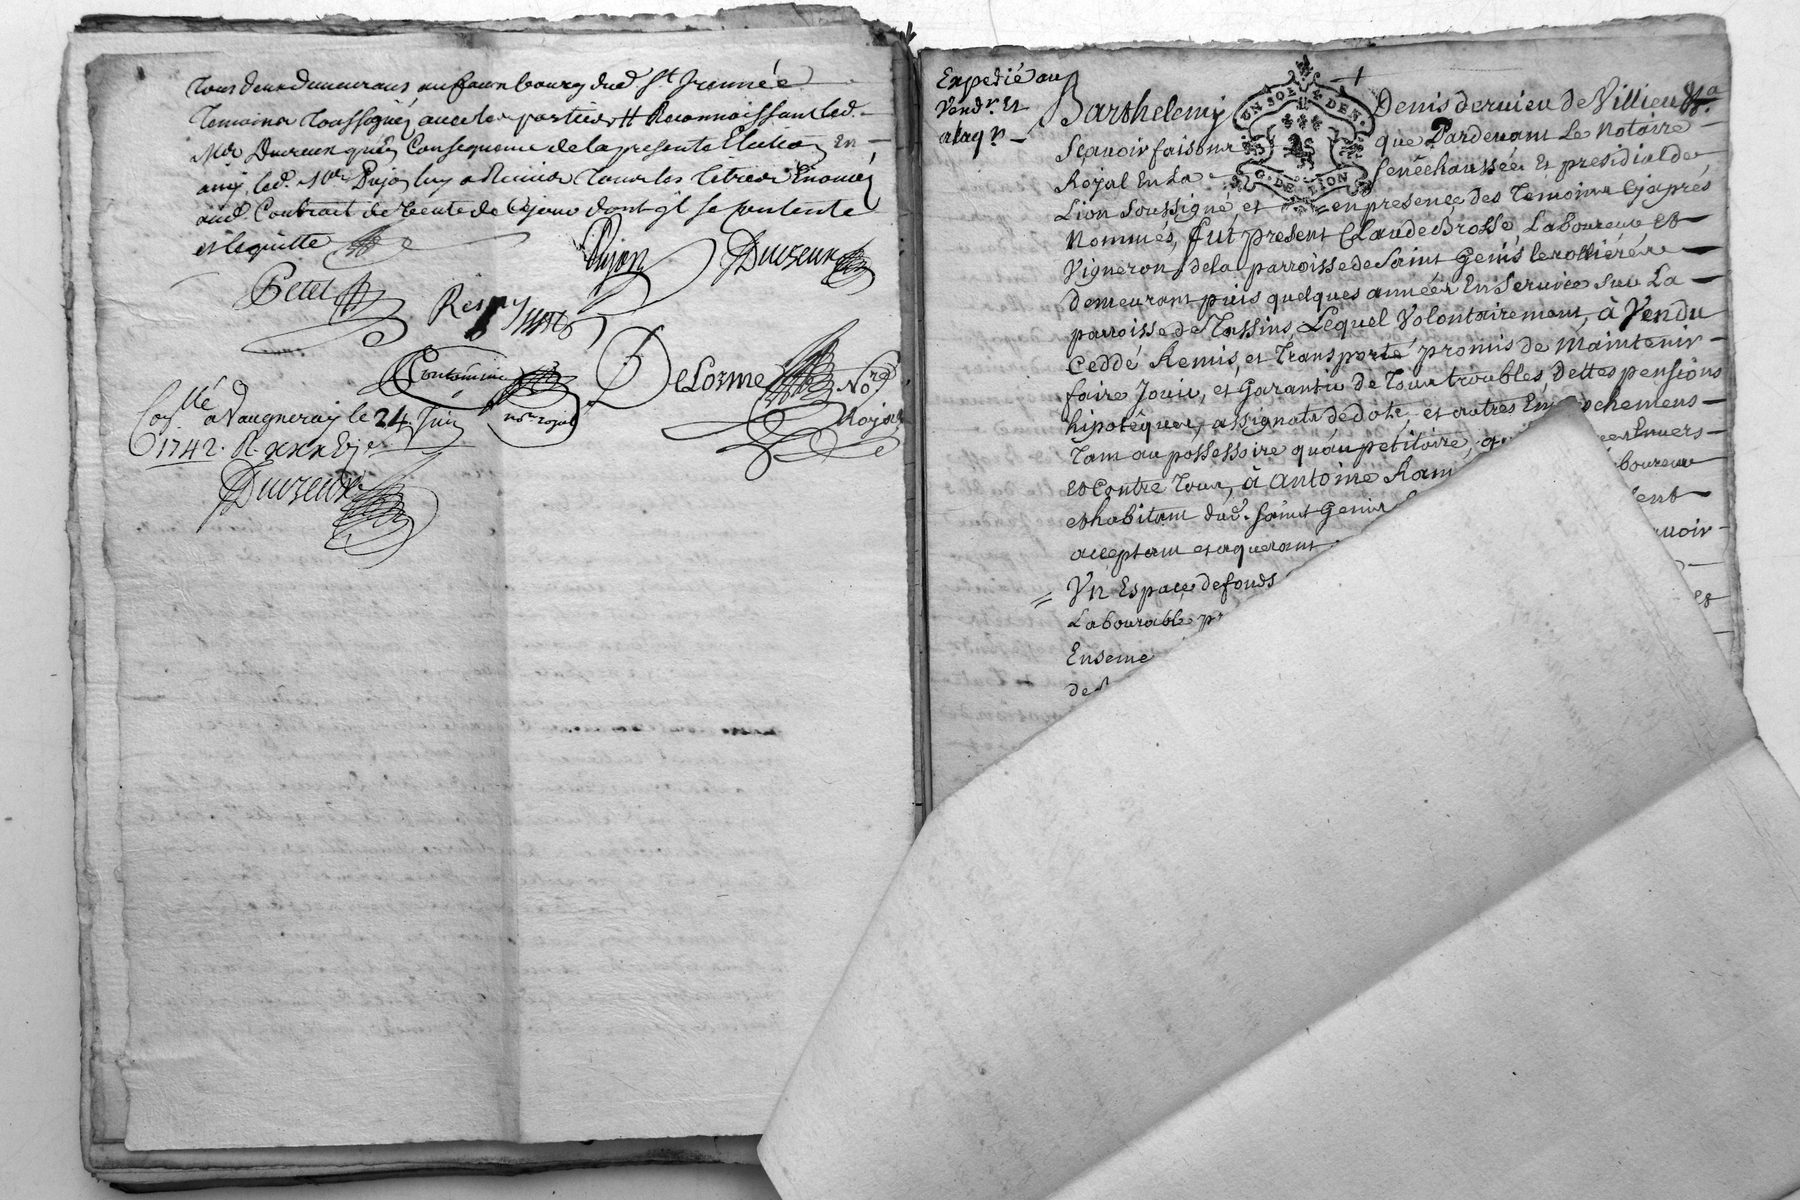 tous deux demeurans au faux bourg dud. St Irennée
temoins soussignés avec les parties # Reconnoissant led.
Mr Ducreux qu'en Consequence de la presente Election En
amy led. Mr Dujon luy a Remis tous les titres Enoncés
aud. Contrait de vente de Cejour dont il se contente
et le quitte
Dujon Ducreux
Petel
Remy
Contamin
not. royal
DeLorme Nore
Royal
Collé
a Vaugneray le 24. Juin
1742. R.
Ducreux
Expedié au
Vendr. Et
alaqr.
UN SOL DEN.
G. DE LION
Barthelemy Denis dervieu de Villieu
Scavoir faisons que Pardevant Le Notoire
Royal En La Senéchaussée Et presidial de
Lion Soussigné et en presence des Temoins Cyaprés
Nommés, fut present Claude Brosse Laboureur et
Vigneron de la parroisse de Saint Genis lerolliére
demeurant puis quelques années En Service sur La
parroisse de Tassins, Lequel Volontairement, à Vendu
Ceddé Remis, et Transporté promis de Maintenir
faire Jouir, et Garantir de Tous troubles, dettes pensions
hipotêques, assignats de dote, et autres Em chemens
Tant au possessoire qu'au petitoire, Envers
et Contre Tous, à Antoine boureur
et habitant dud. Saint Genis ent
acceptant et aquerant uoir
Un Espace de fonds
Labourable et
Enseme
de